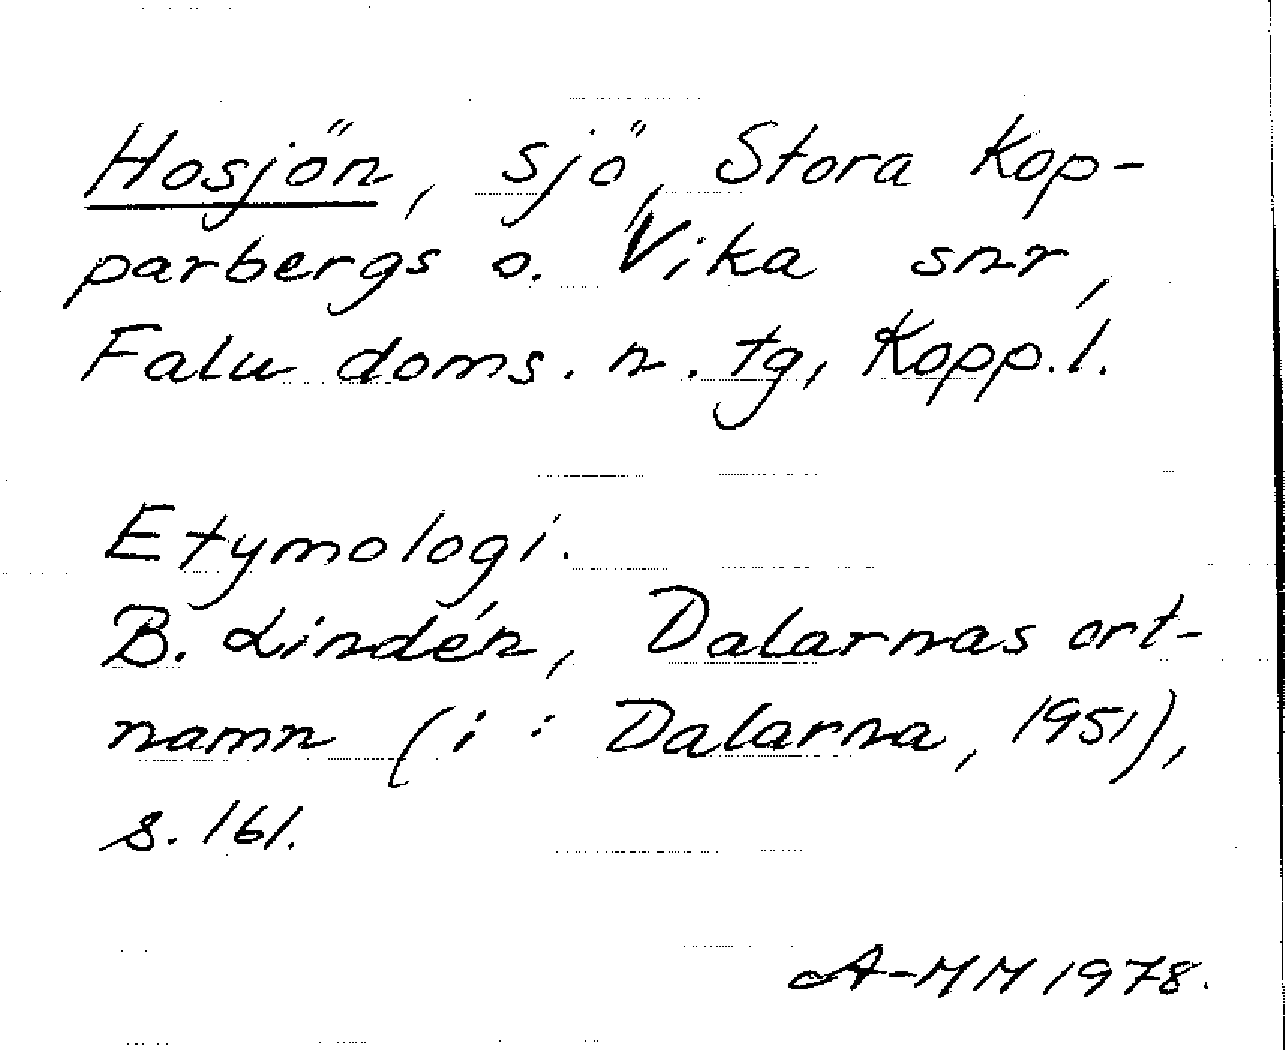 Hosjön, sjö, Stora Kop-
parbergs o. Vika snr,
Falu doms. n. tg, Kopp.l.
Etymologi.
B. Lindén, Dalarnas ort-
namn (i: Dalarna, 1951),
s. 161.
A-MM 1978.